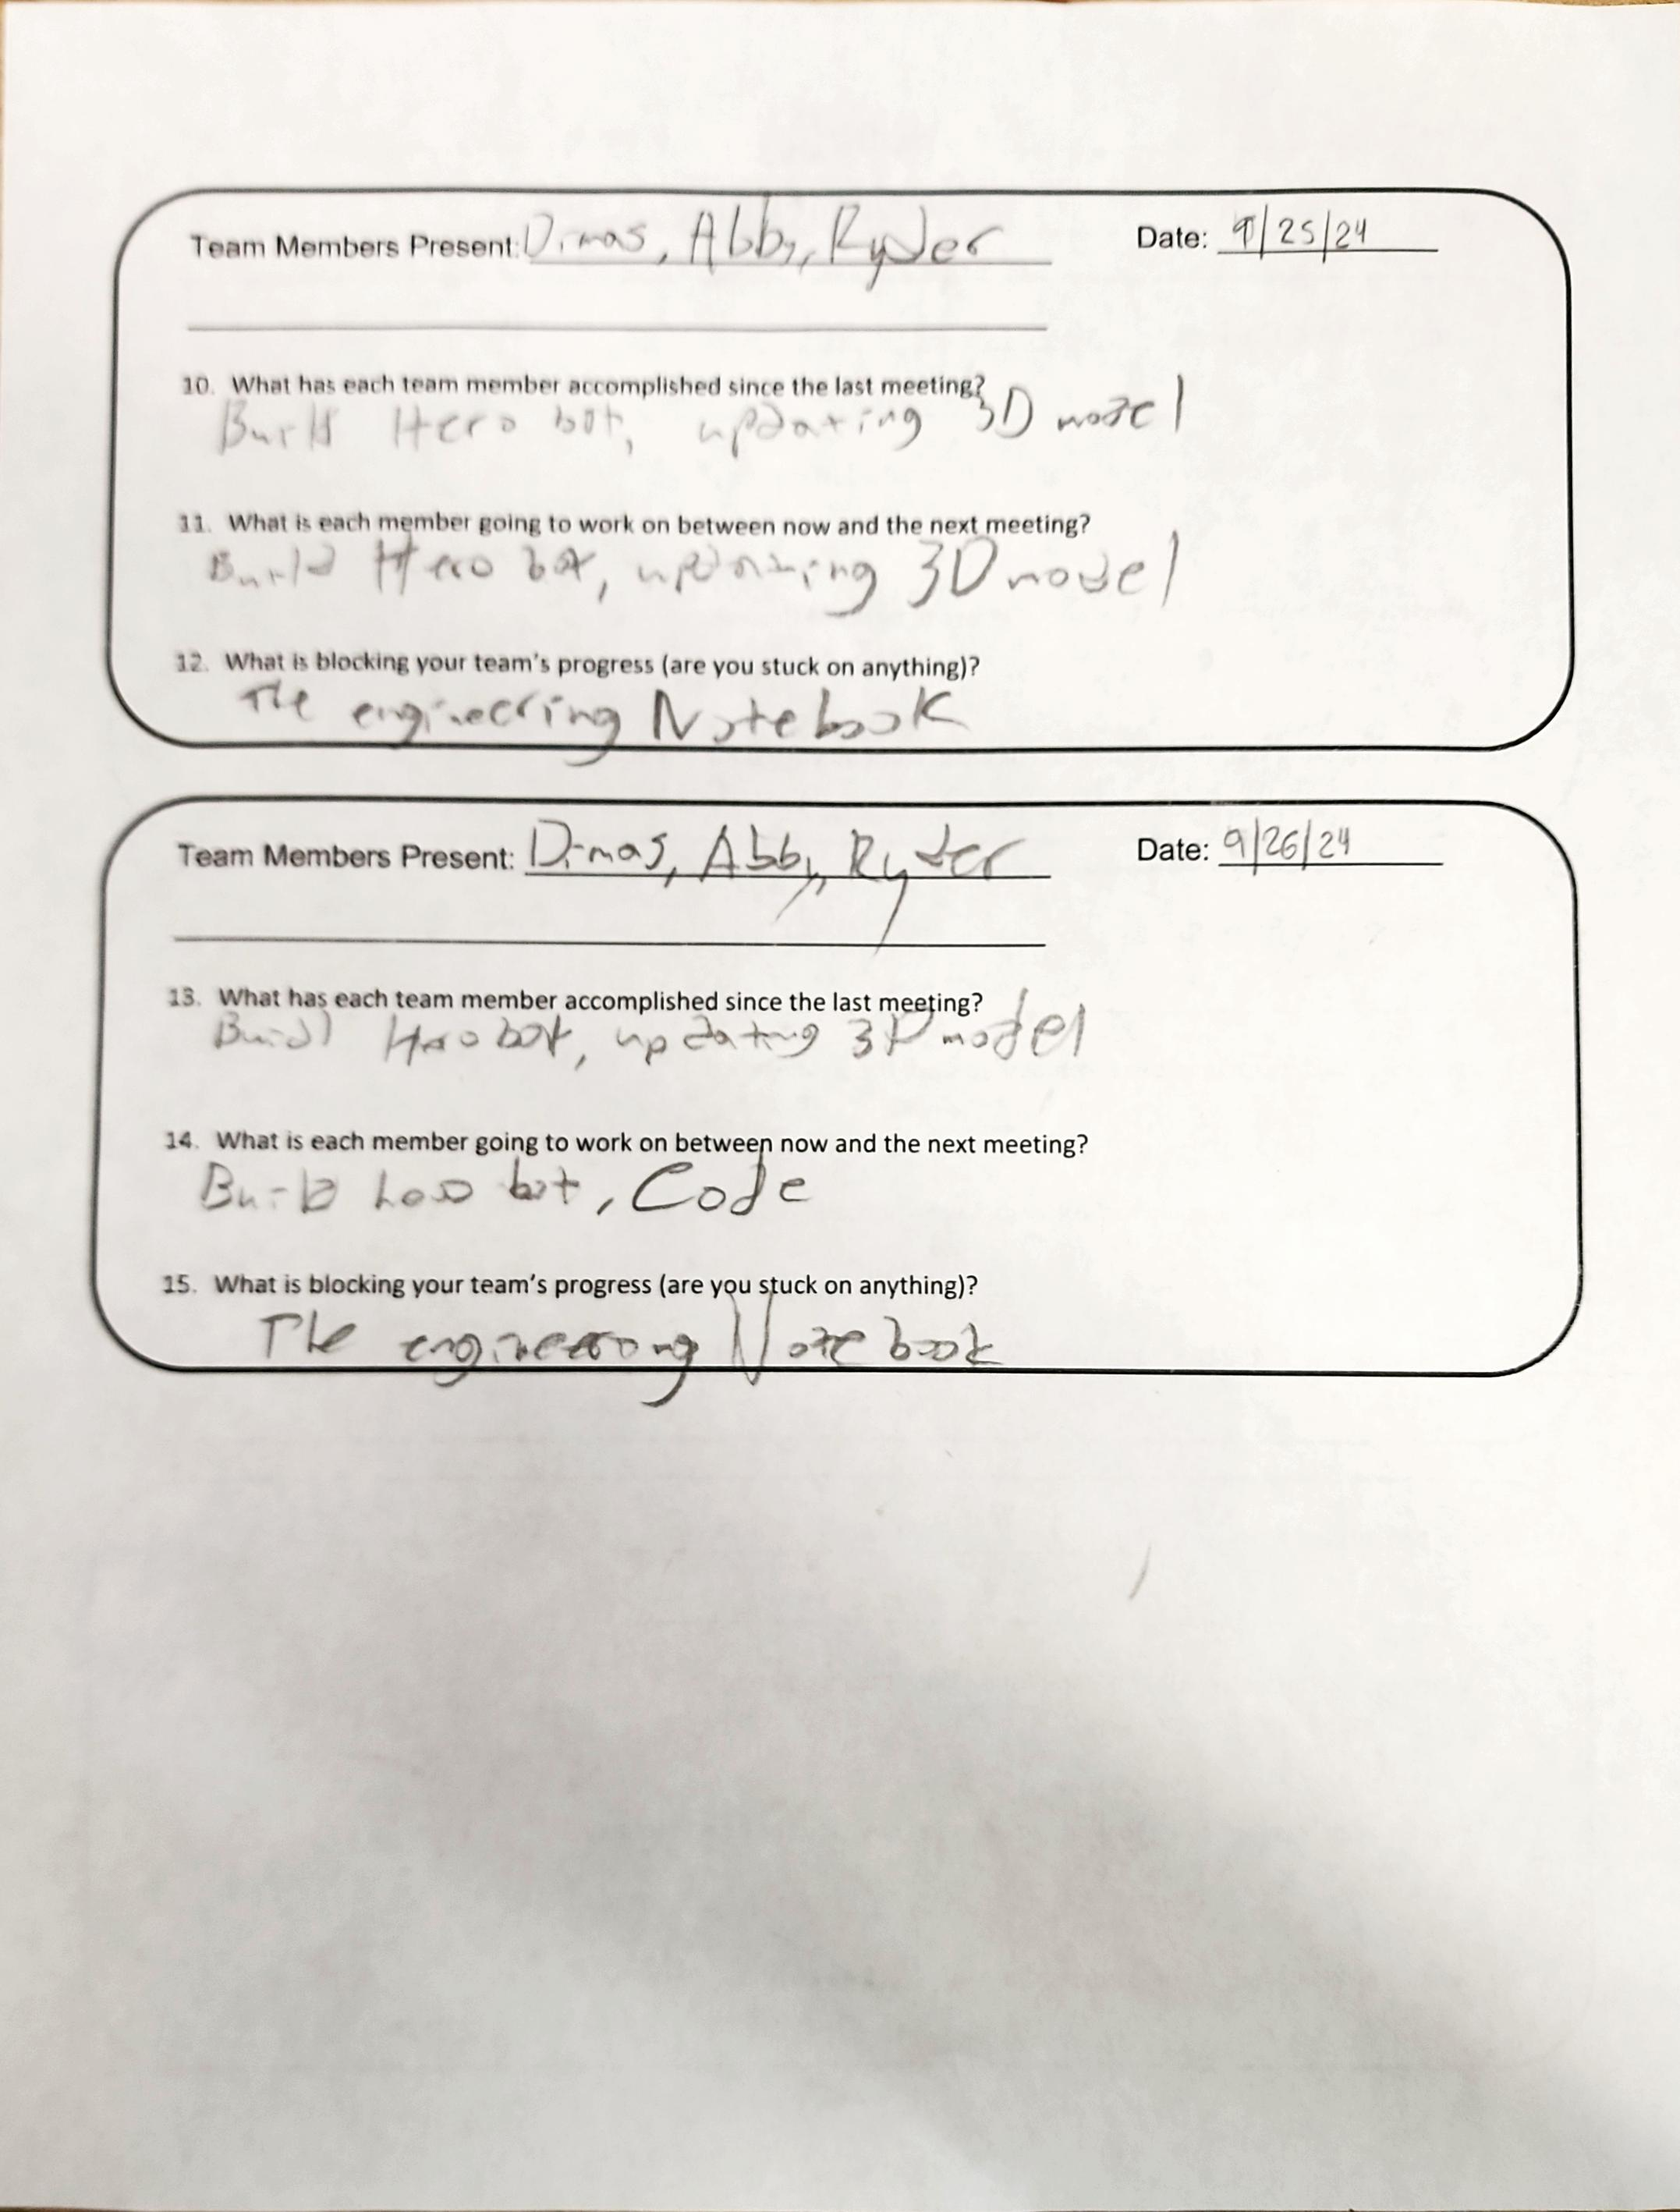 Team Members Present: Dimas, Abby, Ryder Date: 9/25/24
10. What has each team member accomplished since the last meeting?
Build Hero bot, updating 3D model
11. What is each member going to work on between now and the next meeting?
Build Hero bot, updating 3D model
12. What is blocking your team's progress (are you stuck on anything)?
The engineering Notebook
Team Members Present: Dimas, Abby, Ryder Date: 9/26/24
13. What has each team member accomplished since the last meeting?
Build Hero bot, updating 3D model
14. What is each member going to work on between now and the next meeting?
Build bot, Code
15. What is blocking your team's progress (are you stuck on anything)?
The engineering Notebook